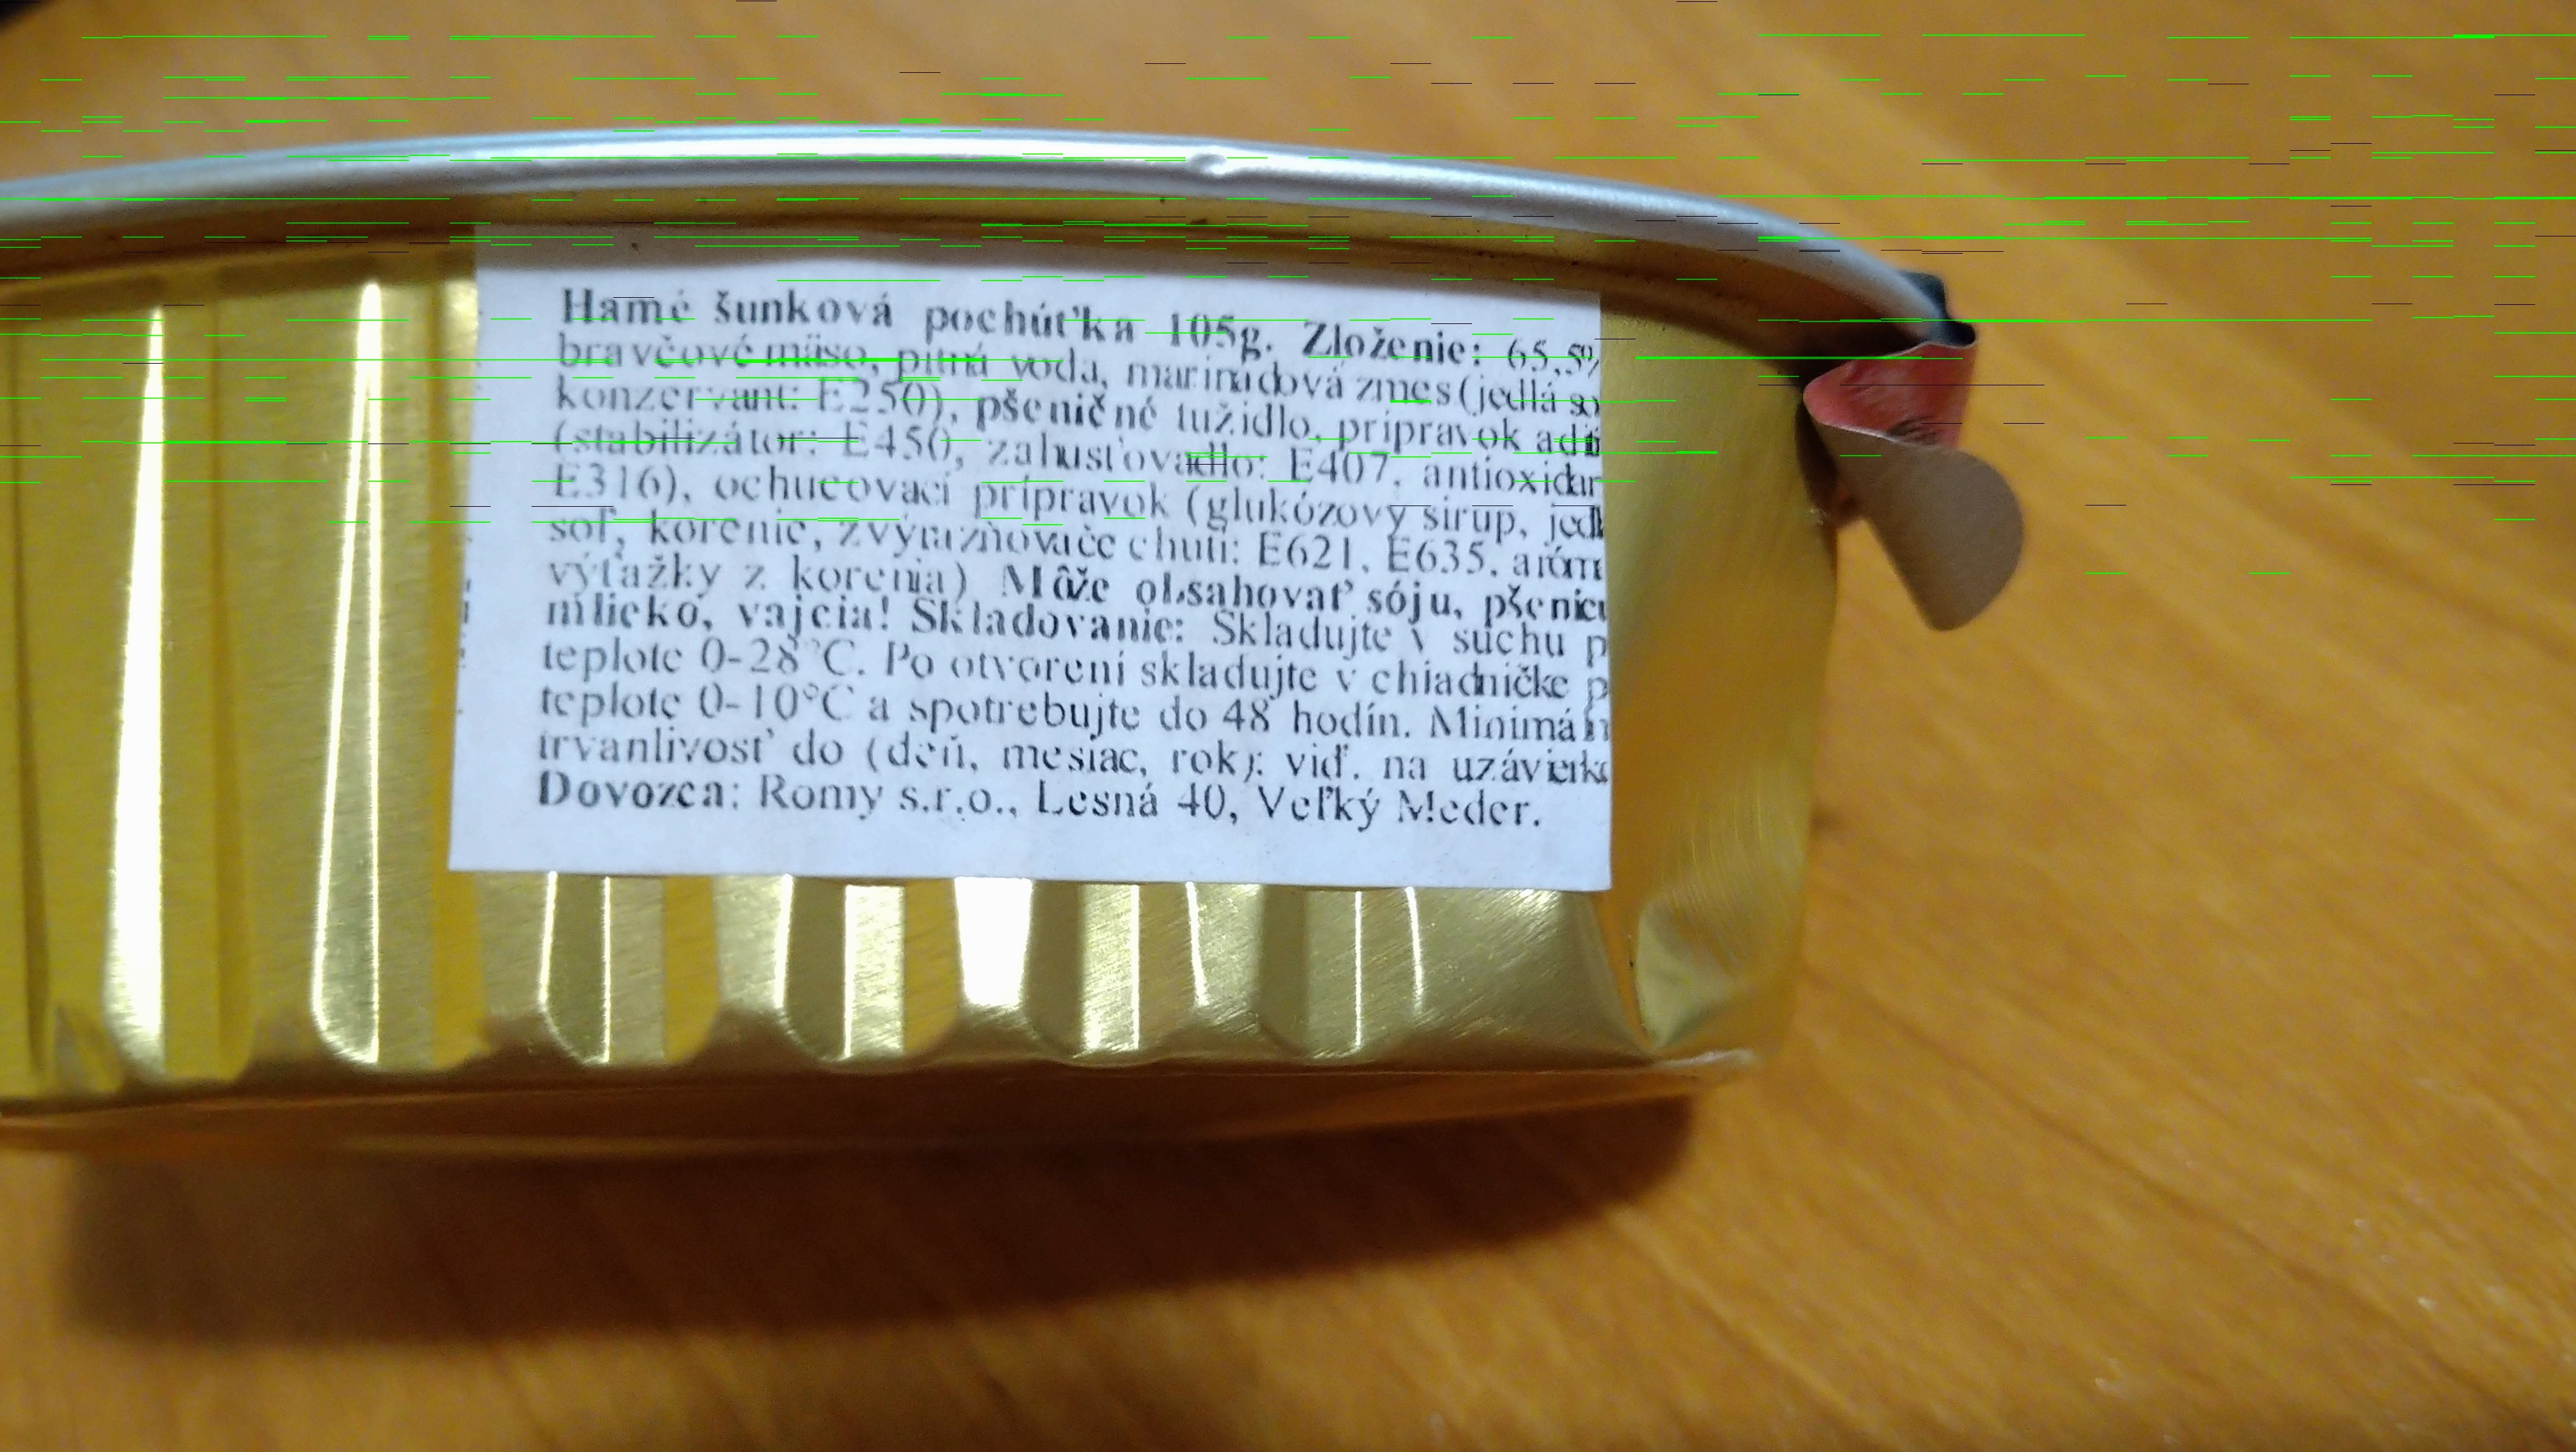 Hamé šunková pochúťka 105g. Zloženie: 65,5%
bravčové mäso, pitná voda, marinadová zmes (jedlá so
konzervant: E250), pšeničné tužidlo, prípravok adit
(stabilizátor: E450, zahusťovadlo: E407, antioxidan
E316), ochucovací prípravok (glukózový sirup, jedl
soľ, korenie, zvýrazňovače chuti: E621, E635, aróm
výťažky z korenia) Môže obsahovať sóju, pšenicu
mlieko, vajcia! Skladovanie: Skladujte v suchu p
teplote 0-28°C. Po otvorení skladujte v chladničke p
teplote 0-10°C a spotrebujte do 48 hodín. Minimáln
trvanlivosť do (deň, mesiac, rok): viď. na uzávierke
Dovozca: Romy s.r.o., Lesná 40, Veľký Meder.